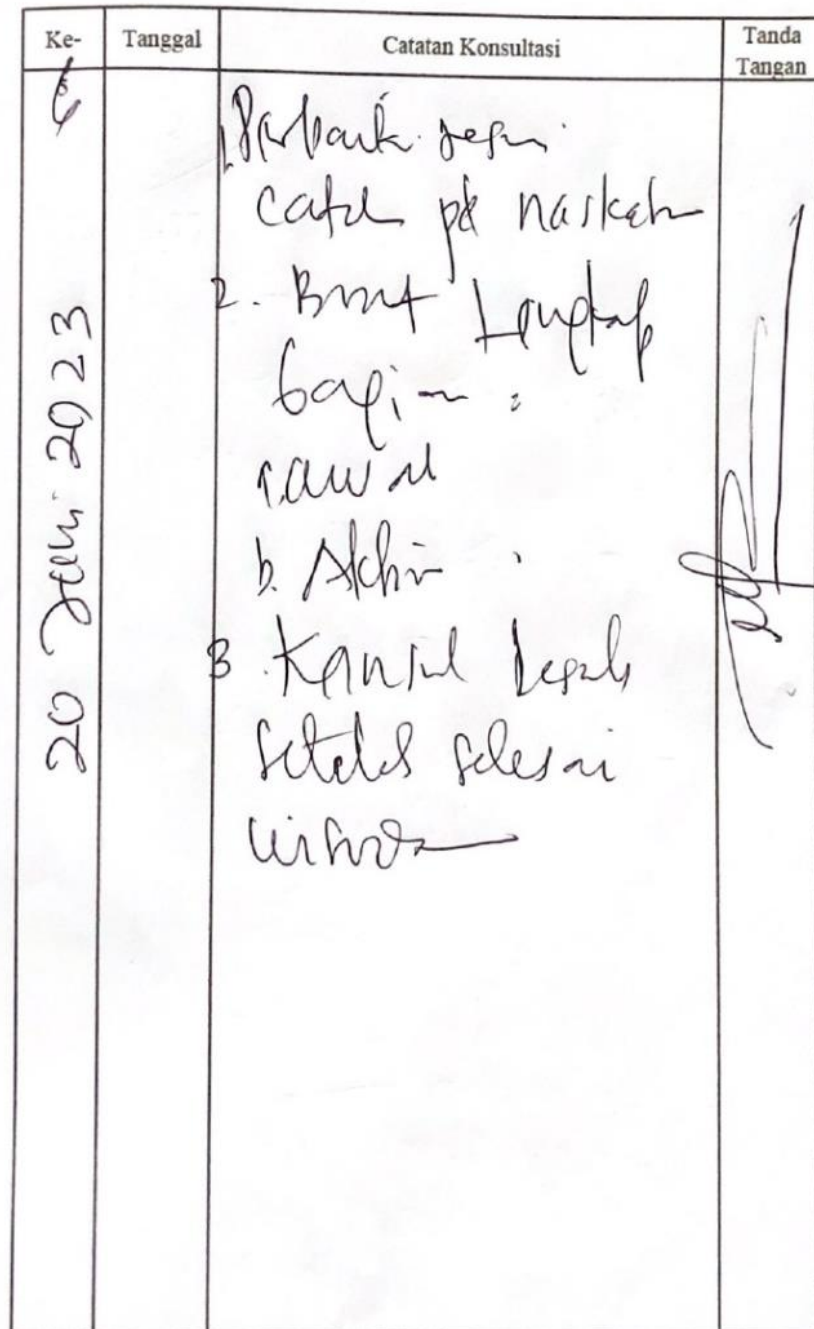 Ke- Tanggal Catatan Konsultasi Tanda Tangan
20 Juli 2023
1. Perbaiki sesuai
catatan pd naskah
2. Buat Lengkap
bagian :
a. awal
b. Akhir
3. Konsul
setelah selesai